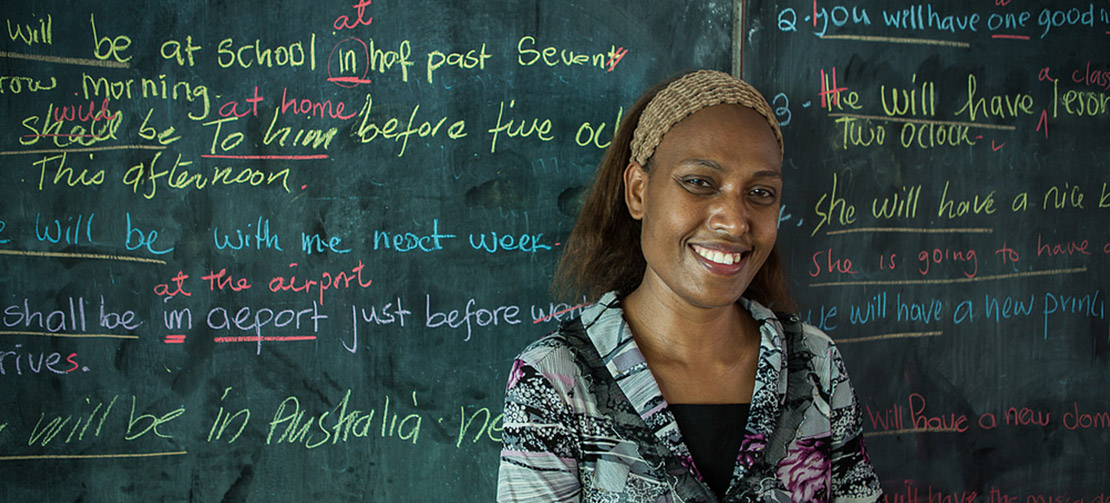 will be at school in haf past Seven
at
morning.
will
shall be To him before five
at home
This afternoon.
will be with me next week.
at the airport
shall be in aeport just before went
rives.
will be in Australia
2. you will have one good
3. He will have
a class
Two oclock.
she will have a nice
she is going to have
we will have a new
will have a new
will have the